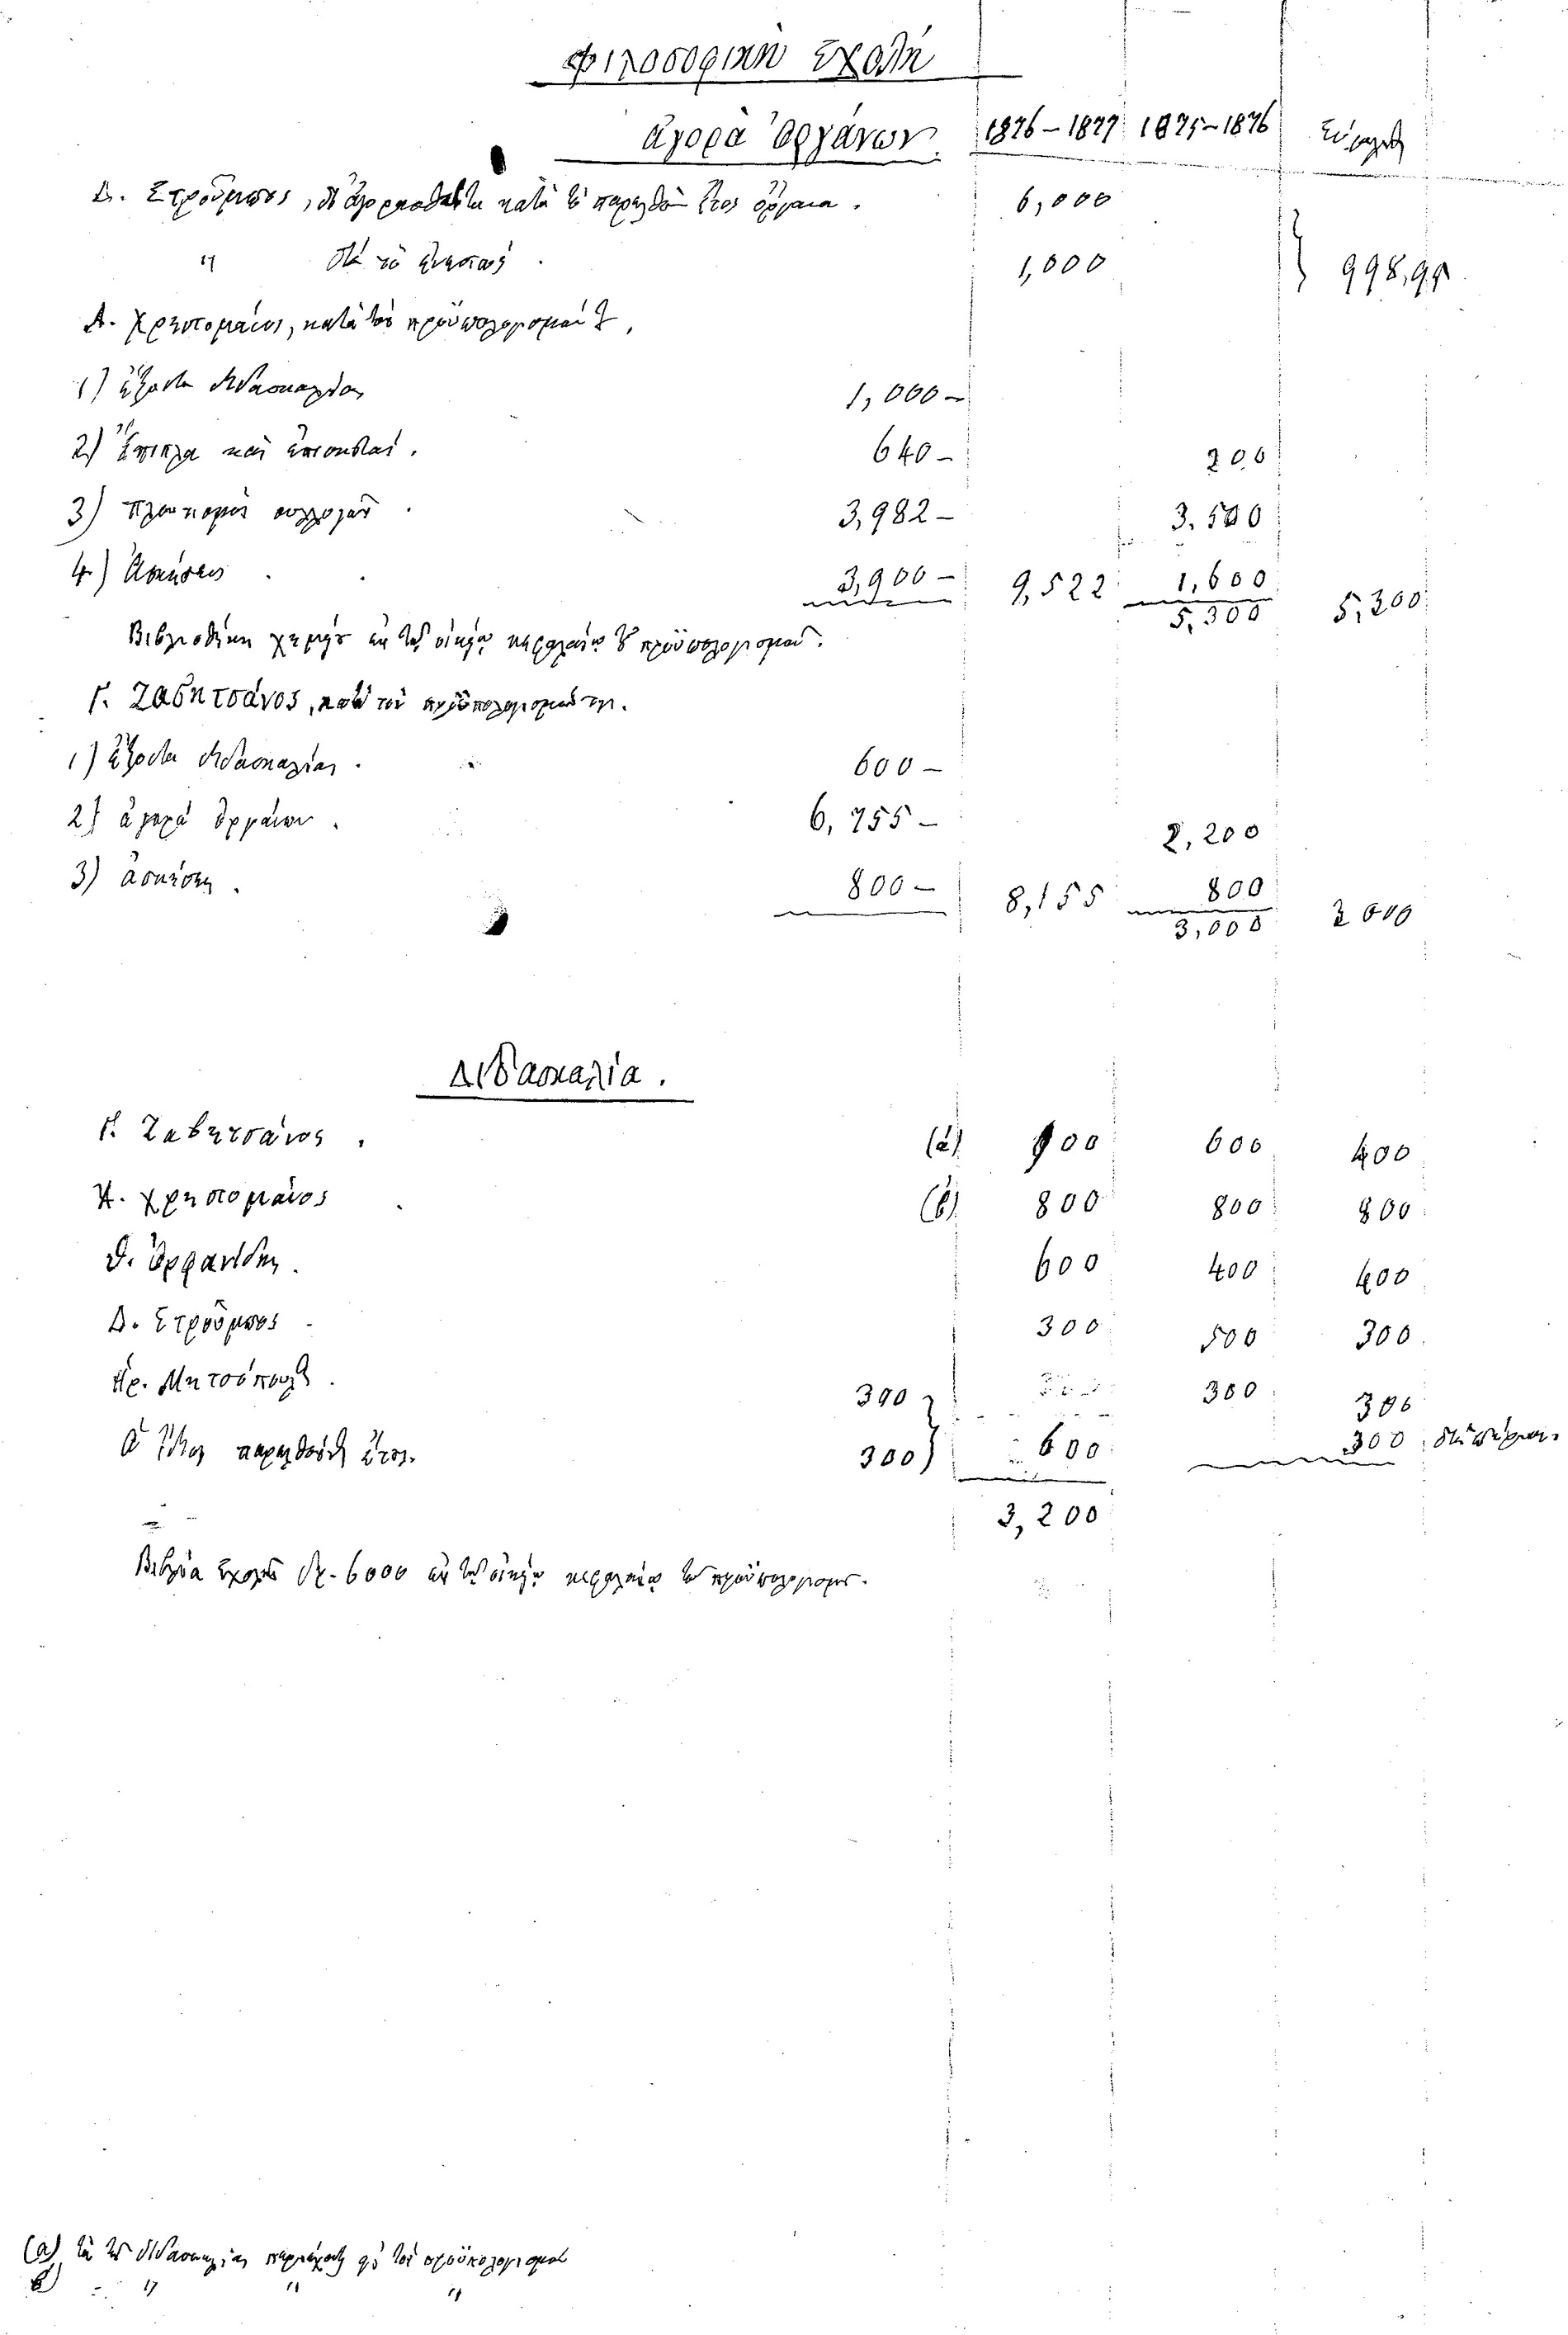 Φιλοσοφικὴ Σχολή
ἀγορὰ Ὀργάνων 1876-1877 1875-1876
Δ. Στροῦμπος, δι' ἀγορασθέντα κατὰ τὸ παρελθὸν ἔτος ὄργανα. 6,000
" διὰ τὸ ἐνεστώς. 1,000 998,99
Α. Χρηστομάνος, κατὰ τὸν προϋπολογισμόν
1) ἔξοδα διδασκαλίας 1,000-
2) Ἔπιπλα καὶ ἐπισκευαί. 640- 200
3) πλουτισμὸς συλλογῶν 3,982- 3.500
4) Ἀσκήσεις 3,900- 9,522 1,600
5,300 5,300
Βιβλιοθήκη χημείου ἐκ τοῦ οἰκείου κεφαλαίου τοῦ προϋπολογισμοῦ.
Γ. Ζαβιτσάνος, κατὰ τὸν προϋπολογισμόν του.
1) ἔξοδα διδασκαλίας. 600-
2) ἀγορὰ ὀργάνων. 6,755- 2,200
3) ἀσκήσεις. 800- 8,155 800
3,000 3000
Διδασκαλία.
Γ. Ζαβιτσάνος. (α) 900 600 400
Α. Χρηστομάνος (β) 800 800 800
Θ. Ὀρφανίδης. 600 400 400
Δ. Στροῦμπος 300 500 300
Ἡρ. Μητσόπουλος. 300 300 300
Ὁ ἴδιος παρελθόντος ἔτους. 300 600 300
3,200
Βιβλία Σχολῆς δρ. 6000 ἐκ τοῦ οἰκείου κεφαλαίου τοῦ προϋπολογισμοῦ.
(α) τὰ τῆς διδασκαλίας εἰς τὸν προϋπολογισμόν
β) " " "